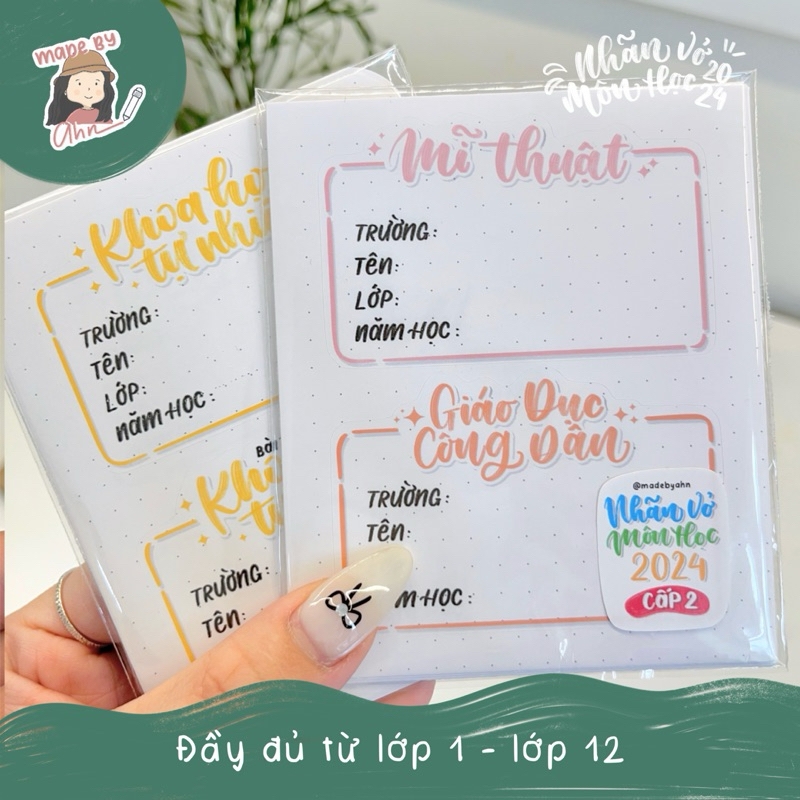 made by
ahn
Nhãn vở
Môn Học
2024
Mĩ thuật
TRƯỜNG:
Tên:
LỚP:
năm HỌC:
Giáo Dục
Công Dân
TRƯỜNG:
Tên:
m HỌC:
@madebyahn
Nhãn vở
Môn Học
2024
Cấp 2
Khoa họ
tự nhi
TRƯỜNG:
Tên:
LỚP:
năm HỌC:
TRƯỜNG:
Tên:
Đầy đủ từ lớp 1 - lớp 12